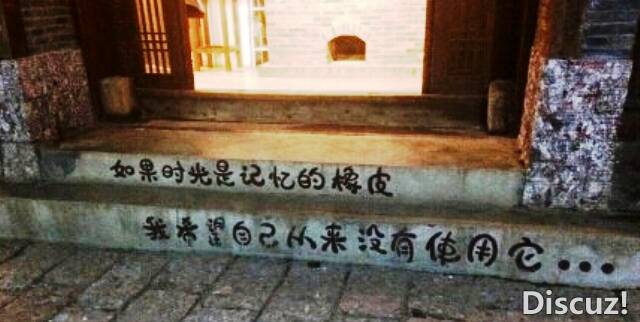 如果时光是记忆的橡皮
我希望自己从来没有使用它...
Discuz!